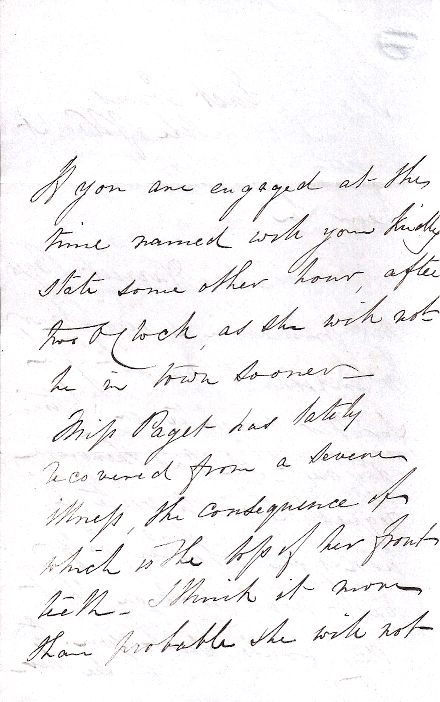 If you are engaged at the
time named will you kindly
state some other hour, after
two O'Clock, as she will not
be in town sooner —
Miss Paget has lately
recovered from a severe
illness, the consequence of
which is the loss of her front
teeth — I think it more
than probable she will not